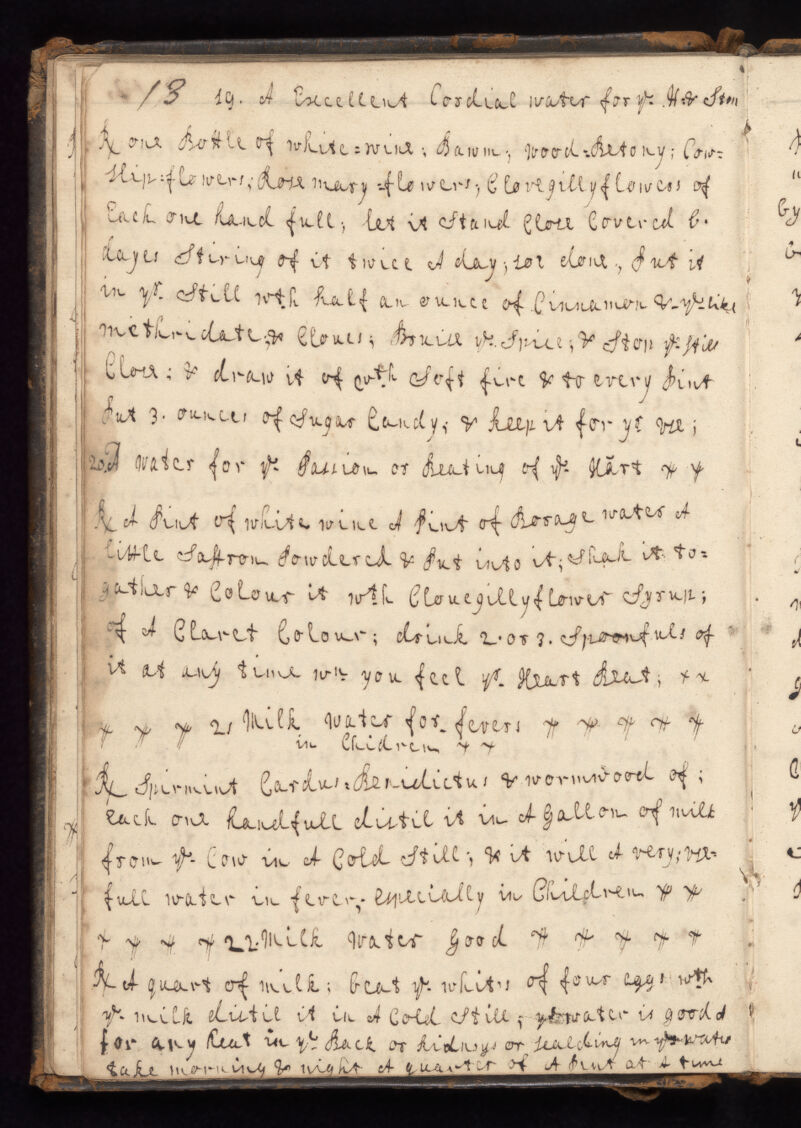 13 19. A Excellent Cordial water for ye. H & Stom
℞ one Bottle of white=wine; Bawm; wood=Betony; Cow=
slip=flowers; Rose mary=flowers; Clovegillyflowers of
Each one hand full; let it Stand Close Covered 6.
dayes Stiring of it twice A day; so done, Put it
in ye. Still wth half an ounce of Cinnamon & ye. like
methridate, & Cloues; Bruise ye. Spice; & Stop ye. Still
Close; & draw it of wth Soft fire & to every Pint
Put 3. ounces of Sugar Candy; & keep it for yr vse;
20. A water for ye. Passion or Beating of ye. Hart
℞ A Pint of white wine A Pint of Borage water A
little Saffron Powdered & Put into it; Shak it to=
gather & Colour it wth Clouegillyflower Syrup;
of A Claret Colour; drink 2. or 3. Spoonfuls of
it at any time wn you feel ye. Heart Beat; x x
21 Milk water for fevers
in Chidren
℞ Spirmint Cardus=Benidictus & wormwood of;
Each one handfull distil it in A Gallon of milk
from ye. Cow in A Cold Still; & it will A very; vse=
full water in fever; especially in Children
22. Milk water Good
℞ A quart of milk; beat ye. whites of four eggs wth
ye. milk distil it in A Cold Still; water is good
for any heat in ye. Back or kidneys or scalding in water
take morning & night A quarter of A Pint at A time